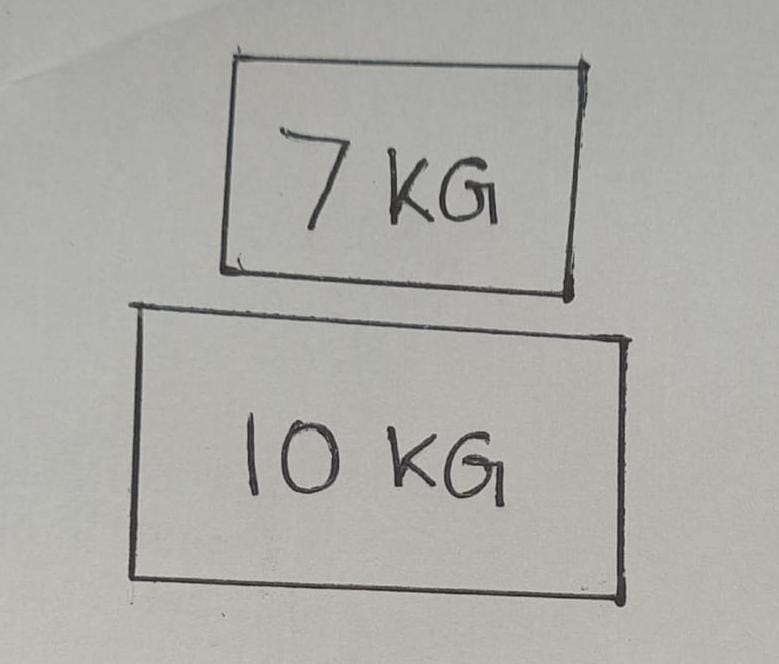 7 KG
10 KG